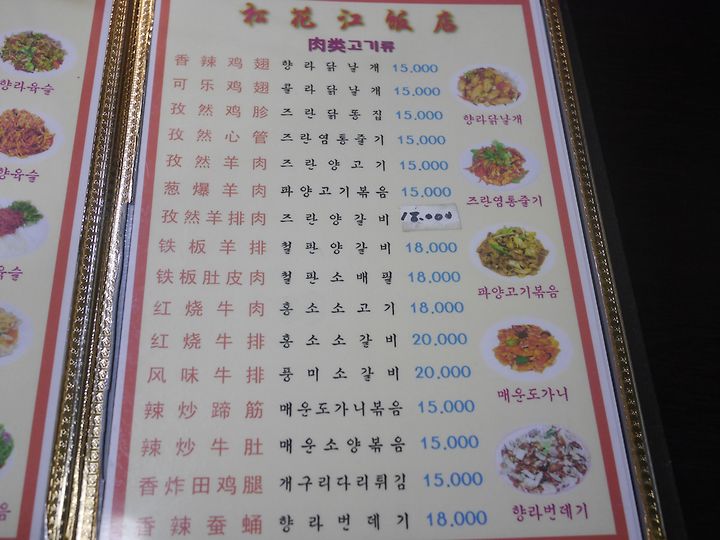 松花江饭店
肉类고기류
香辣鸡翅 향라닭날개 15,000
可乐鸡翅 콜라닭날개 15,000
孜然鸡胗 즈란닭똥집 15,000
孜然心管 즈란염통줄기 15,000
孜然羊肉 즈란양고기 15,000
葱爆羊肉 파양고기볶음 15,000
孜然羊排肉 즈란양갈비 18.000
铁板羊排 철판양갈비 18,000
铁板肚皮肉 철판소배필 18,000
红烧牛肉 홍소소고기 18,000
红烧牛排 홍소소갈비 20,000
风味牛排 풍미소갈비 20,000
辣炒蹄筋 매운도가니볶음 15,000
辣炒牛肚 매운소양볶음 15,000
香炸田鸡腿 개구리다리튀김 15,000
香辣蚕蛹 향라번데기 18,000
향라닭날개
즈란염통줄기
파양고기볶음
매운도가니
향라번데기
향라육슬
향육슬
육슬
음